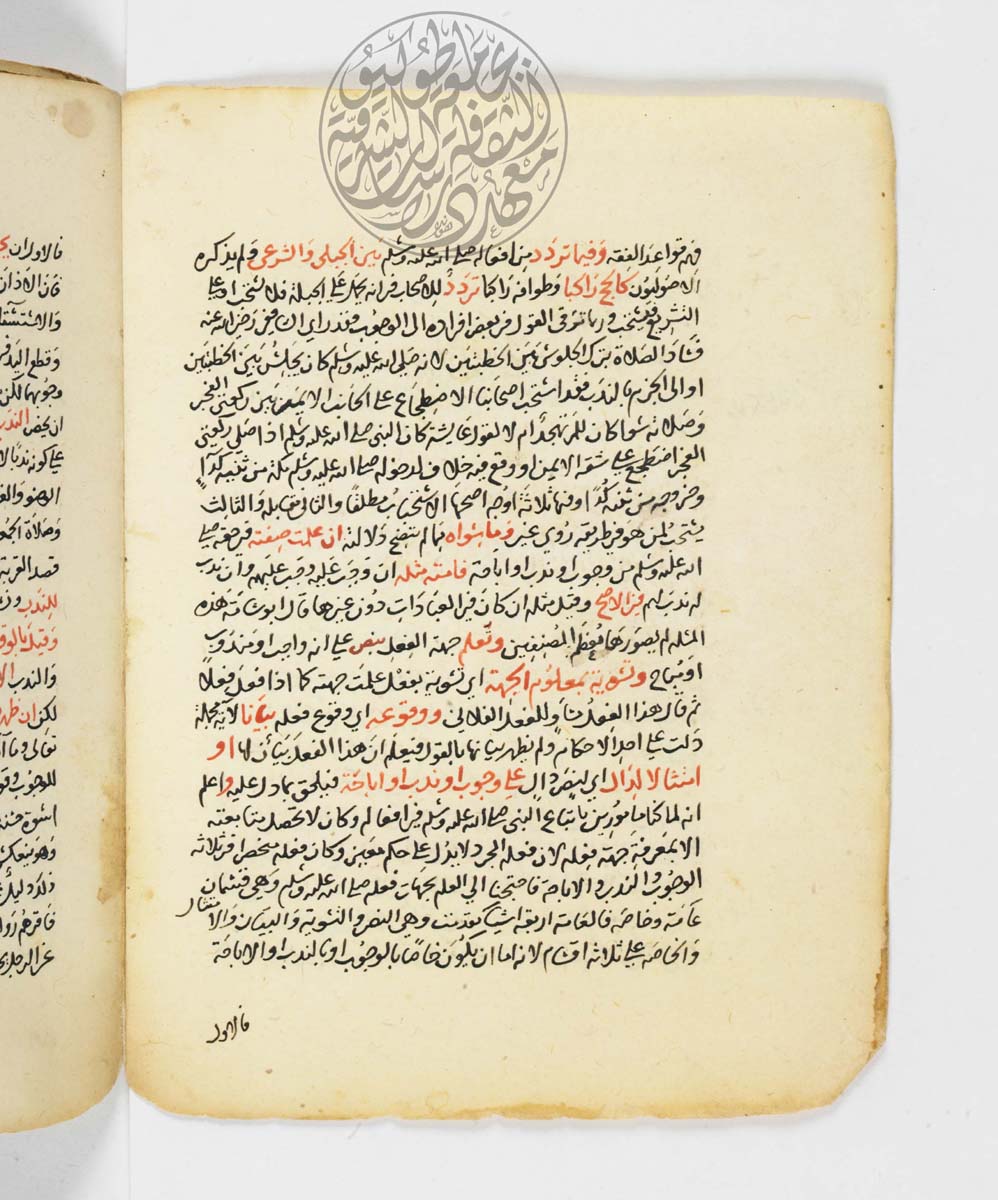 معهد الثقافة والدراسات الشرقية جامعة طوكيو
فهم قواعد الفقه وفيما تردد من افعاله صلى الله عليه وسلم بين الجبلي والشرعي ولم يذكره
الاصوليون كالحج راكبا وطوافه راكبا تردد للاصحاب في انه يحمل على الجبلة فلا يستحب او على
التشريع فيستحب وربما ترقى القول في بعض افراده الى الوجوب وقد راي الشافعي رضي الله عنه
فساد الصلاة بترك الجلوس بين الخطبتين لانه صلى الله عليه وسلم كان يجلس بين الخطبتين
او الى الجزم بالندب فقد استحب اصحابنا الاضطجاع على الجانب الايمن بين ركعتي الفجر
وصلاته سوا كان للمرء تهجد ام لا لقول عايشة كان النبي صلى الله عليه وسلم اذا صلى ركعتي
الفجر اضطجع على شقه الايمن او وقع فيه خلاف لدخوله صلى الله عليه وسلم مكة من ثنية كدا
وخروجه من ثنية كُدا وفيها ثلاثة اوجه اصحها الاستحباب مطلقا والثاني مقابله والثالث
يستحب لمن هو في طريقه دون غيره وما سواه مما لم يتضح دلالته ان علمت صفته في حقه صلى
الله عليه وسلم من وجوب او ندب او اباحة فامته مثله ان وجب عليه وجب عليهم وان ندب
له ندب لهم في الاصح وقيل مثله ان كان في العبادات دون غيرها قال ابو شامة هذه
المثلة لم يصورها معظم المصنفين وتعلم جهة الفعل بنص على انه واجب او مندوب
او مباح وتسوية بمعلوم الجهة اي تسوية بفعل علمت جهته كما اذا فعل فعلا
ثم قال هذا الفعل مساو للفعل الفلاني ووقوعه اي وقوع فعله بيانا لآية مجملة
دلت على احد الاحكام ولم يظهر بيانها بالقول فيعلم ان هذا الفعل بيان لها او
امتثالا لدال اي لنص دال على وجوب او ندب او اباحة فيلحق بما دل عليه واعلم
انه لما كنا مامورين باتباع النبي صلى الله عليه وسلم في افعاله وكان لا تحصل متابعته
الا بمعرفة جهة فعله لان فعله المجرد لا يدل على حكم معين وكان فعله منحصرا في ثلاثة
الوجوب والندب والاباحة فاحتجنا الى العلم بجهات فعله صلى الله عليه وسلم وهي قسمان
عامة وخاصة فالعامة اربعة اشيا تقدمت وهي النص والتسوية والبيان والامتثال
والخاصة على ثلاثة اقسام لانه اما ان يكون خاصا بالوجوب او بالندب او الاباحة
فالاول